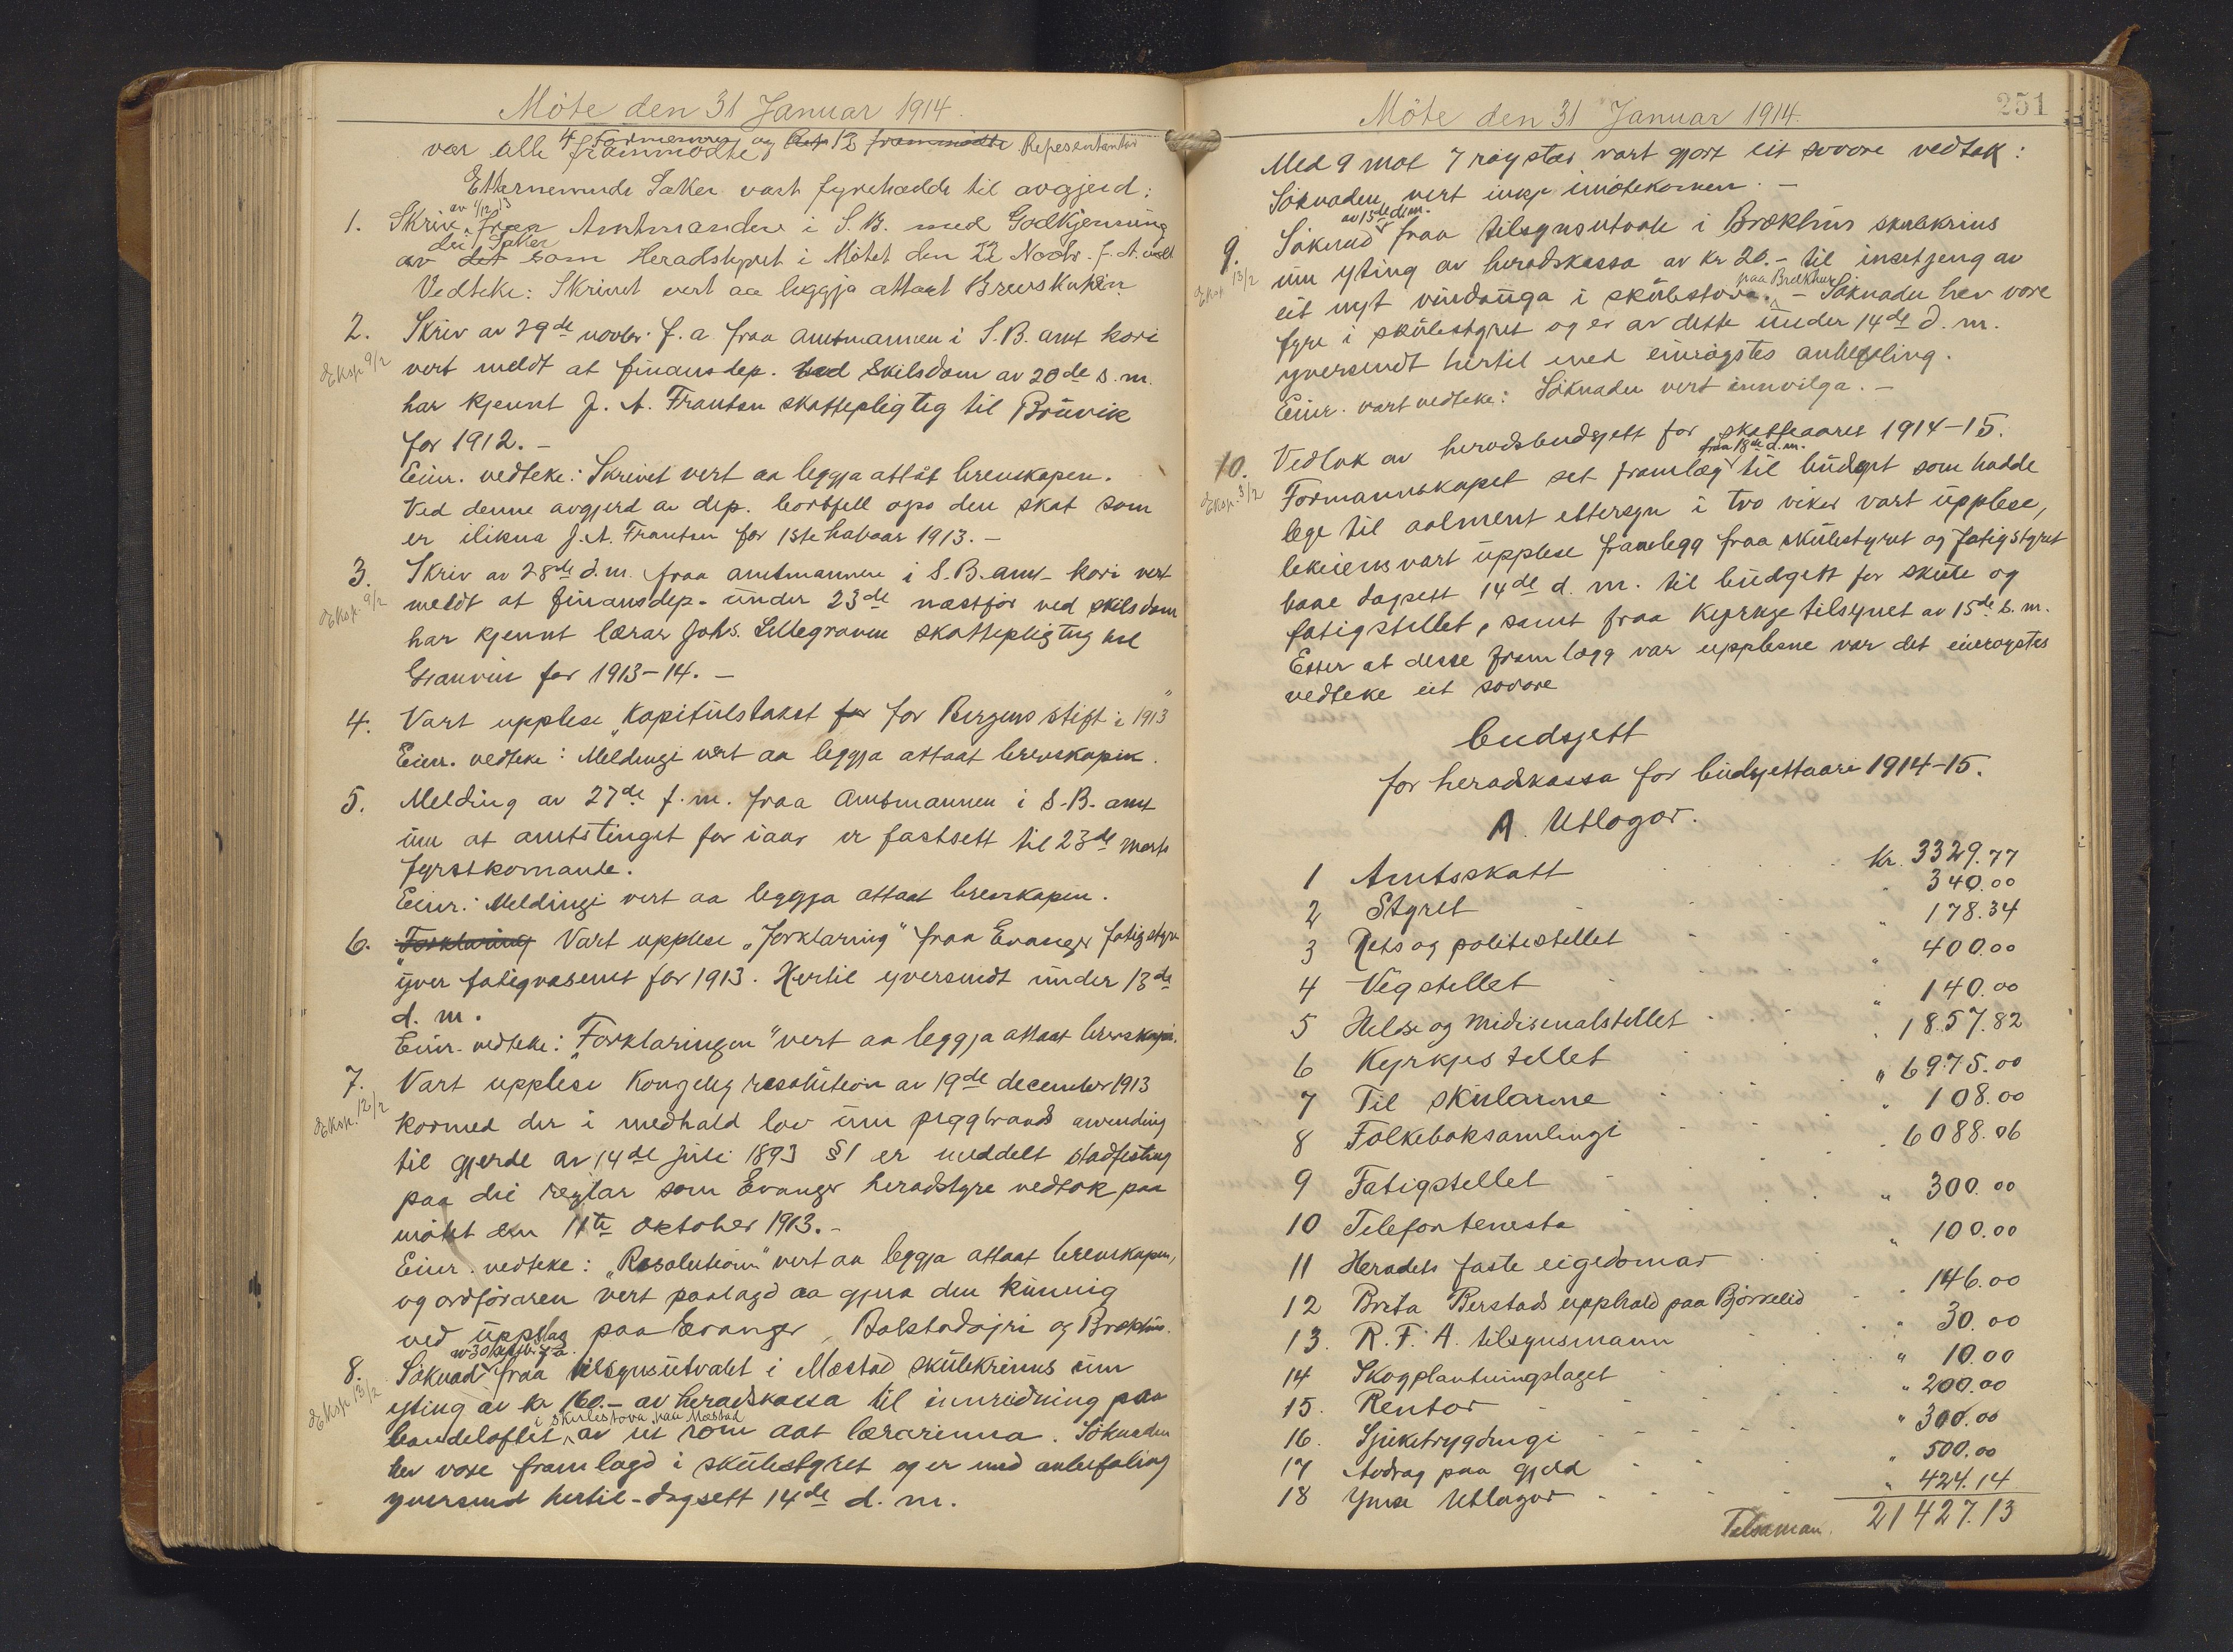 Möte den 31 Januar 1914.
var alle 4 Formenner og 12 frammötte Representantar
frammötte
Etternemnde Saker vart fyrehadde til avgjerd:
av 1/12 13
1. Skriv fraa Amtmanden i S. B. med Godkjenning
dei Saker
av det som Heradstyret i Mötet den 22 Novbr. f. A.
Vedteke: Skrivet vert aa leggja attaat Brevskapen.
2. Skriv av 29de novbr. f. a. fraa amtmannen i S. B. amt kori
Eksp. 9/2
vert meldt at finansdep. ved Skilsdom av 20de s. m.
har kjennt J. A. Frantsen skattepligtig til Bruvik
for 1912. –
Einr. vedteke: Skrivet vert aa leggja attåt brevskapen.
Ved denne avgjerd av dep. bortfell ogso den skat som
er ilikna J. A. Frantsen for 1ste halvaar 1913. –
3. Skriv av 28de d.m. fraa amtmannen i S. B. amt kori vert
Eksp. 9/2
meldt at finansdep. under 23de næstför ved skilsdom
har kjennt lærar Johs. Lillegraven skattepligtug til
Granvin for 1913–14. –
4. Vart upplese „Kapitulstakst for for Bergens stift i 1913"
Einr. vedteke: Meldingi vert aa leggja attaat brevskapen.
5. Melding av 27de f. m. fraa amtmannen i S. B. amt
um at amtstinget for iaar er fastsett til 23de marts
fyrstkomande.
Einr.: Meldingi vert aa leggja attaat brevskapen.
6. Forklaring Vart upplese „Forklaring" fraa Evanger fatigstyre
yver fatigvæsenet for 1913. Hertil yversendt under 13de
d. m.
Einr. vedteke: „Forklaringen" vert aa leggja attaat brevskapen.
7. Vart upplese Kongeleg resolution av 19de december 1913
Eksp. 12/2
kormed der i medhald lov um piggtraads anvending
til gjerde av 14de juli 1893 §1 er meddelt stadfesting
paa dei reglar som Evanger heradstyre vedtok paa
mötet den 11te oktober 1913. –
Einr. vedteke: „Resolution" vert aa leggja attaat brevskapen,
og ordföraren vert paalagd aa gjera den kunnig
ved uppslag paa Evanger, Bolstadöyri og Brekhus.
av 30 f. a.
8. Söknad fraa tilsynsutvalet i Mæstad skulekrinns um
Eksp 13/2
yting av kr 160.– av heradskassa til innreidning paa
i skulestova paa Mæstad
handeloftet av eit rom aat lærarinna. Söknaden
hev vore framlagd i skulestyret og er med anbefaling
yversend hertil – dagsett 14de d. m.
Möte den 31 Januar 1914.
251
Med 9 mot 7 röyster vart gjort eit sovore vedtak:
Söknaden vert ikkje imötekomen. –
av 15de d.m.
9. Söknad fraa tilsynsutvale i Brækhus skulekrins
Eksp. 13/2
um yting av heradskassa av kr 20.– til insetjeng av
paa Brekhus
eit nyt vindauga i skulestova. – Söknaden hev vore
fyre i skulestyret og er av dette under 14de d. m.
yversendt hertil med einröystes anbefaling.
Einr. vart vedteke: Söknaden vert innvilga. –
10. Vedtak av heradsbudsjett for skatteaaret 1914–15.
Eksp. 3/2
fraa 18de d.m.
Formannskapet set framlæg til budgjet som hadde
lege til aalment ettersyn i tvo viker vart upplese,
lekeiens vart upplese framlegg fraa skulestyret og fatigstyret
baae dagsett 14de d. m. til budgett for skule og
fatigstellet, samt fraa Kyrkje tilsynet av 15de s. m.
Etter at desse framlægg var upplesne var det einröystes
vedteke eit sovore
budsjett
for heradskassa for budsjettaaret 1914–15.
A. Utlogor.
1 Amtsskatt Kr. 3329.77
2 Styret " 340.00
3 Rets og politistellet " 178.34
4 Vegstellet " 400.00
5 Helse og midisinalstellet " 140.00
6 Kyrkjestellet " 1857.82
7 Til skularne " 6975.00
8 Folkeboksamlingi " 108.00
9 Fatigstellet " 6088.06
10 Telefontenesta " 300.00
11 Heradets faste eigedomar " 100.00
12 Brita Berstads upphald paa Björkelid " 146.00
13. R. F. A. tilsynsmann " 30.00
14 Skogplantningslaget " 10.00
15. Rentor " 200.00
16. Sjuketrygdingi " 300.00
17 Avdrag paa gjeld " 500.00
18 Ymse Utlogor " 424.14
Tilsaman. 21427.13